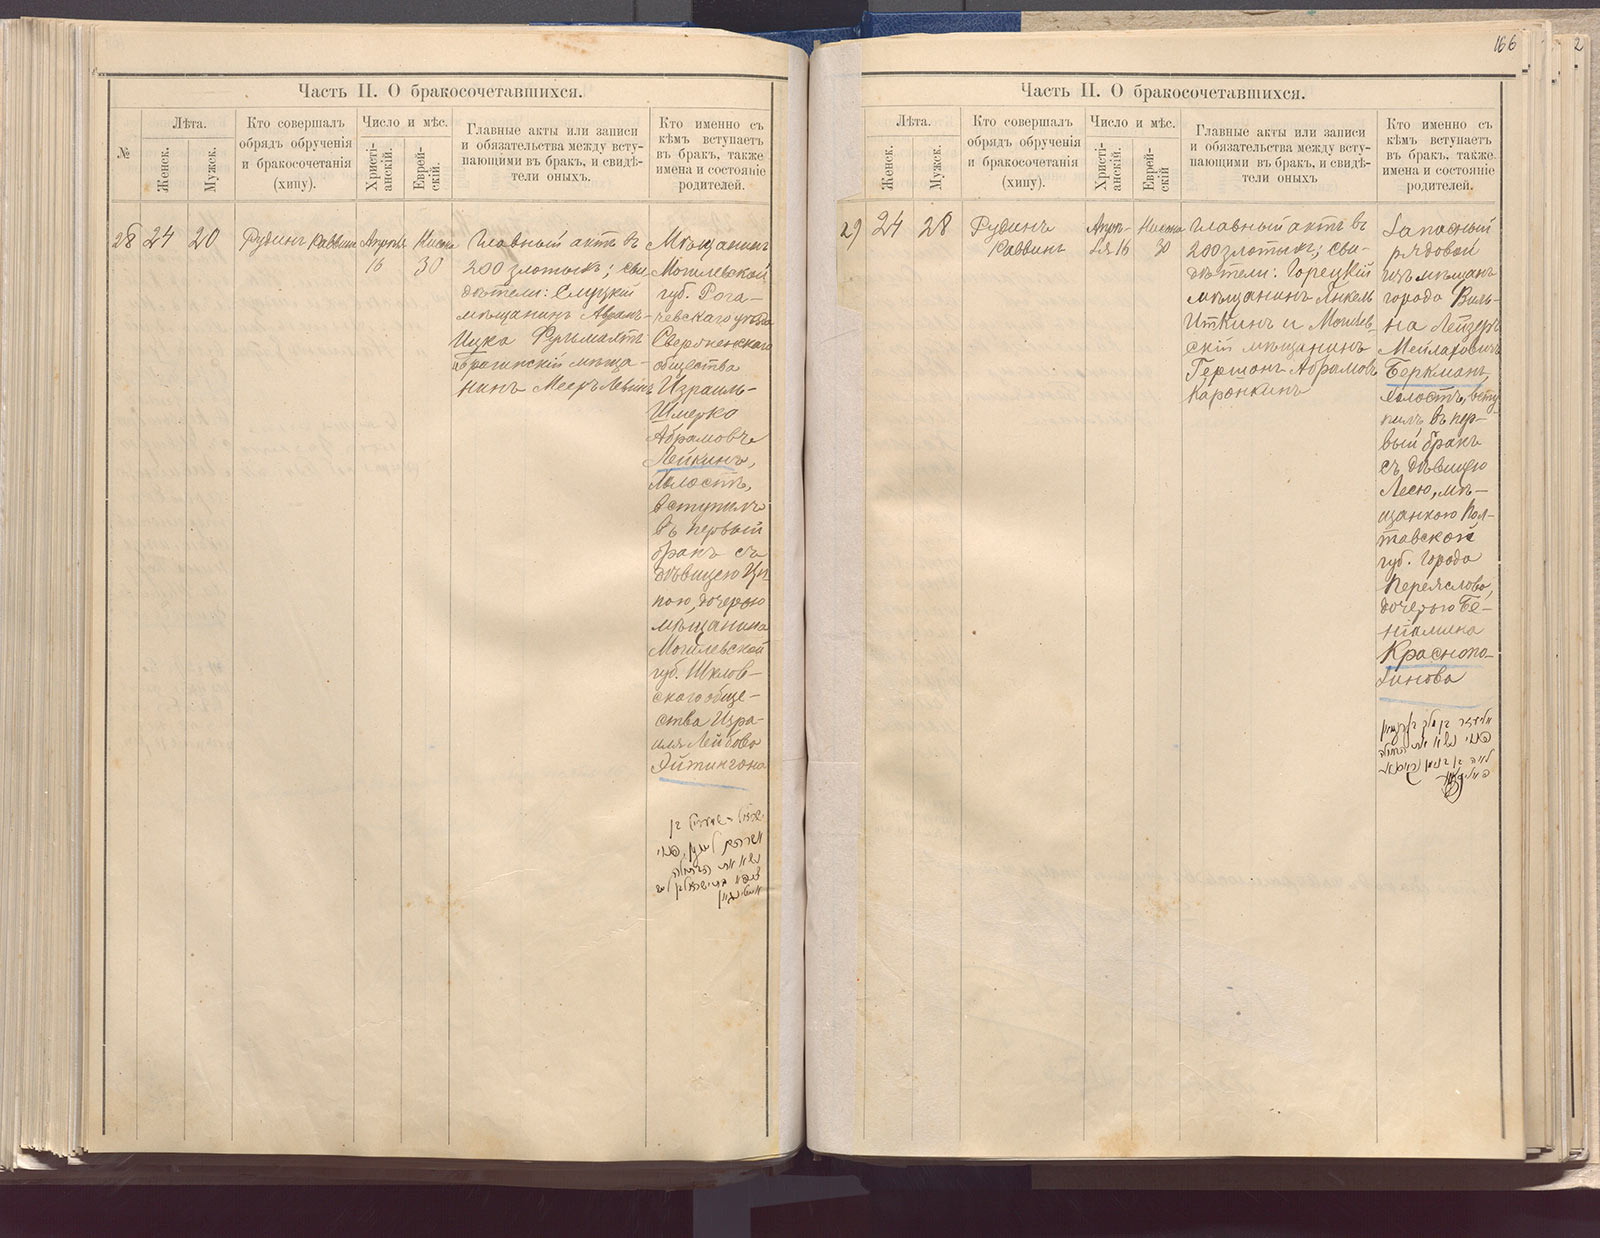 Часть II. О бракосочетавшихся.
№
Лѣта.
Женск.
Мужск.
Кто совершалъ
обрядъ обрученія
и бракосочетанія
(хипу).
Число и мѣс.
Христі-
анскій.
Еврей-
скій.
Главные акты или записи
и обязательства между всту-
пающими въ бракъ, и свидѣ-
тели оныхъ.
Кто именно съ
кѣмъ вступаетъ
въ бракъ, также
имена и состояніе
родителей.
28
24
20
Рудинъ Раввинъ
Апрѣля
16
Нисана
30
Главный актъ въ
200 злотыхъ; сви
дѣтели: Слуцкій
мѣщанинъ Абрамъ-
Ицка
и Брагинскій мѣща-
нинъ Мееръ Левинъ
Мѣщанинъ
Могилевской
губ. Рога-
чевскаго уѣзда
Сверженскаго
общества
Израиль-
Шмерко
Абрамовъ
Лейкинъ,
холостъ,
вступилъ
въ первый
бракъ съ
дѣвицею Ци
пою, дочерью
мѣщанина
Могилевской
губ. Шклов-
скаго обще-
ства Изра-
иля Лейбова
Эйтингона
166
Часть II. О бракосочетавшихся.
Лѣта.
Женск.
Мужск.
Кто совершалъ
обрядъ обрученія
и бракосочетанія
(хипу).
Число и мѣс.
Христі-
анскій.
Еврей-
скій
Главные акты или записи
и обязательства между всту-
пающими въ бракъ, и свидѣ-
тели оныхъ
Кто именно съ
кѣмъ вступаетъ
въ бракъ, также
имена и состояніе
родителей.
29
24
28
Рудинъ
Раввинъ
Апрѣ-
ля 16
Нисана
30
Главный актъ въ
200 злотыхъ; сви-
дѣтели: Горецкій
мѣщанинъ Янкель
Иткинъ и Могилев-
скій мѣщанинъ
Гершонъ Абрамовъ
Каронкинъ
Запасный
рядовой
изъ мѣщанъ
города Виль-
на Лейзеръ
Мейлаховичъ
Беркманъ,
холостъ, всту
пилъ въ пер-
вый бракъ
съ дѣвицею
Лесю, мѣ-
щанкою Пол-
тавской
губ. города
Переяслова,
дочерью Бе-
ніамина
Краснопо-